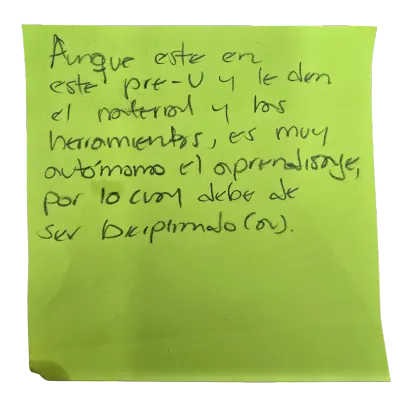 Aunque este en
este pre-U y le den
el material y las
herramientas, es muy
autónomo el aprendisaje,
por lo cual debe de
ser Diciplinado(a).